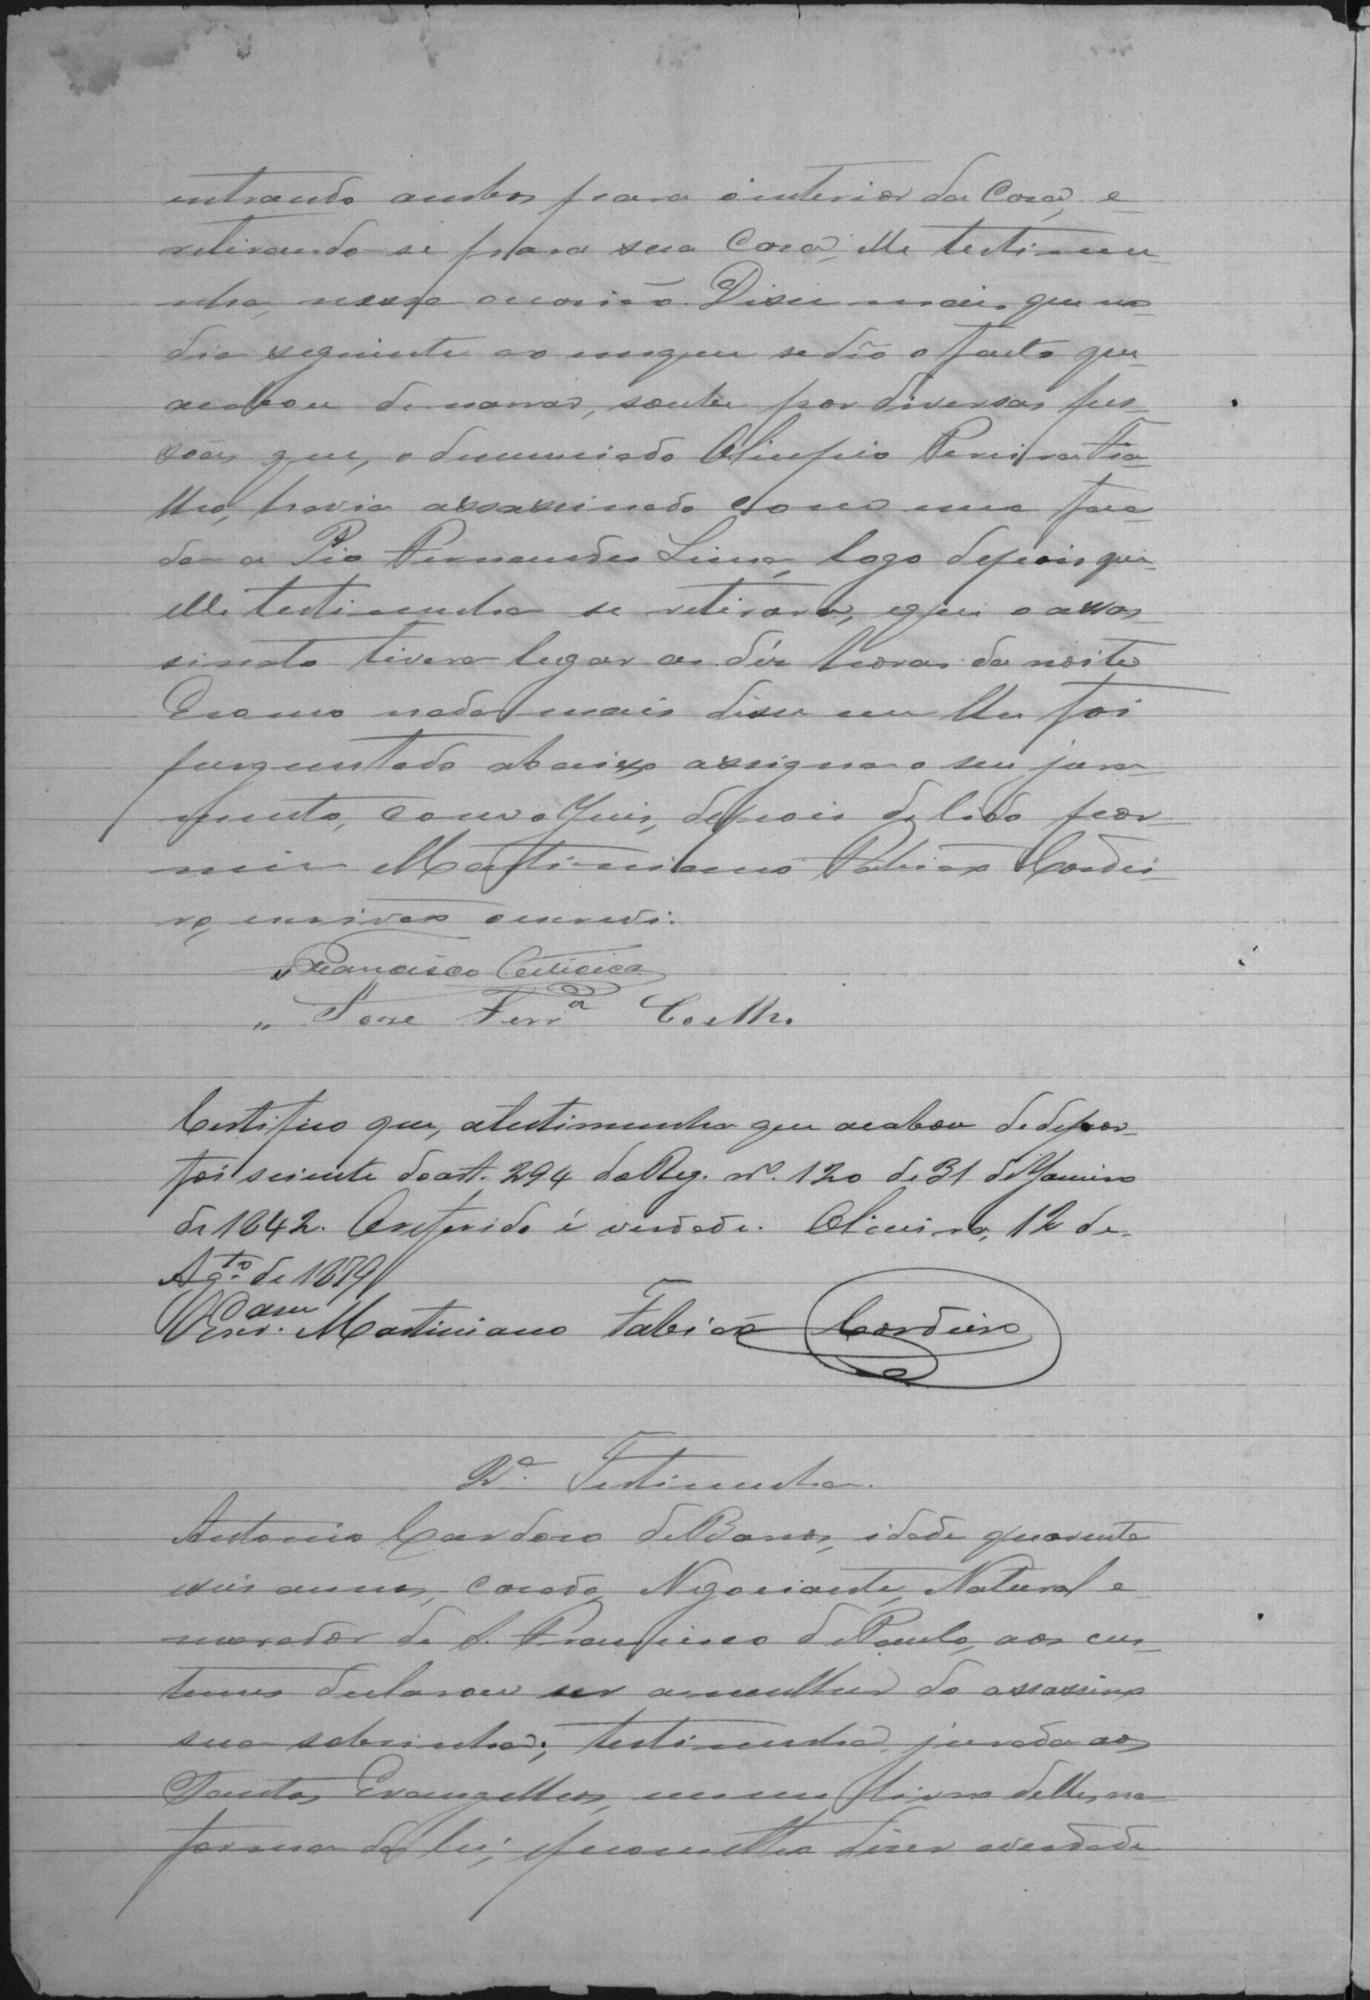 entrando ambos para o interior da Casa, e
retirando-se para sua Casa, elle testimu
nha, nessa occasião. Disse mais que no
dia seguinte ao em que se dêo o facto que
acabou de narrar, soube por diversas pes-
sôas que, o denunciado Olimpio Pereira Fia-
lho, havia assassinado com uma faca-
da a Pio Fernandes Lima, logo depois que
elle testimunha se retirára, e que o assas-
sinato tivera lugar as déz horas da noite
E como nada mais disse nem lhe foi
perguntado abaixo assigna o seu jura-
mento, com o Juis, depois de lido por
mim Martiniano Fabião Cordei-
ro, escrivão o escrevi.
" Francisco
" Jose Ferrª Coelho
Certifico que, a testimunha que acabou de depor
foi sciente do art. 294 do Reg. nº. 120 de 31 de Janeiro
de 1842. O referido é verdade. Oliveira, 12 de
Agto. de 1879
Martiniano Fabião Cordeiro
2ª. Testimunha.
Antonio Cardoso de Barros, idade quarenta
e seis annos, casado, Negociante, Natural e
morador de S. Francisco de Paula, aos cus-
tumes declarou ser a mulher do assassino
sua sobrinha; testimunha jurada aos
Santos Evangelhos, em um livro delles, na
forma da lei, e prometteo dizer a verdade